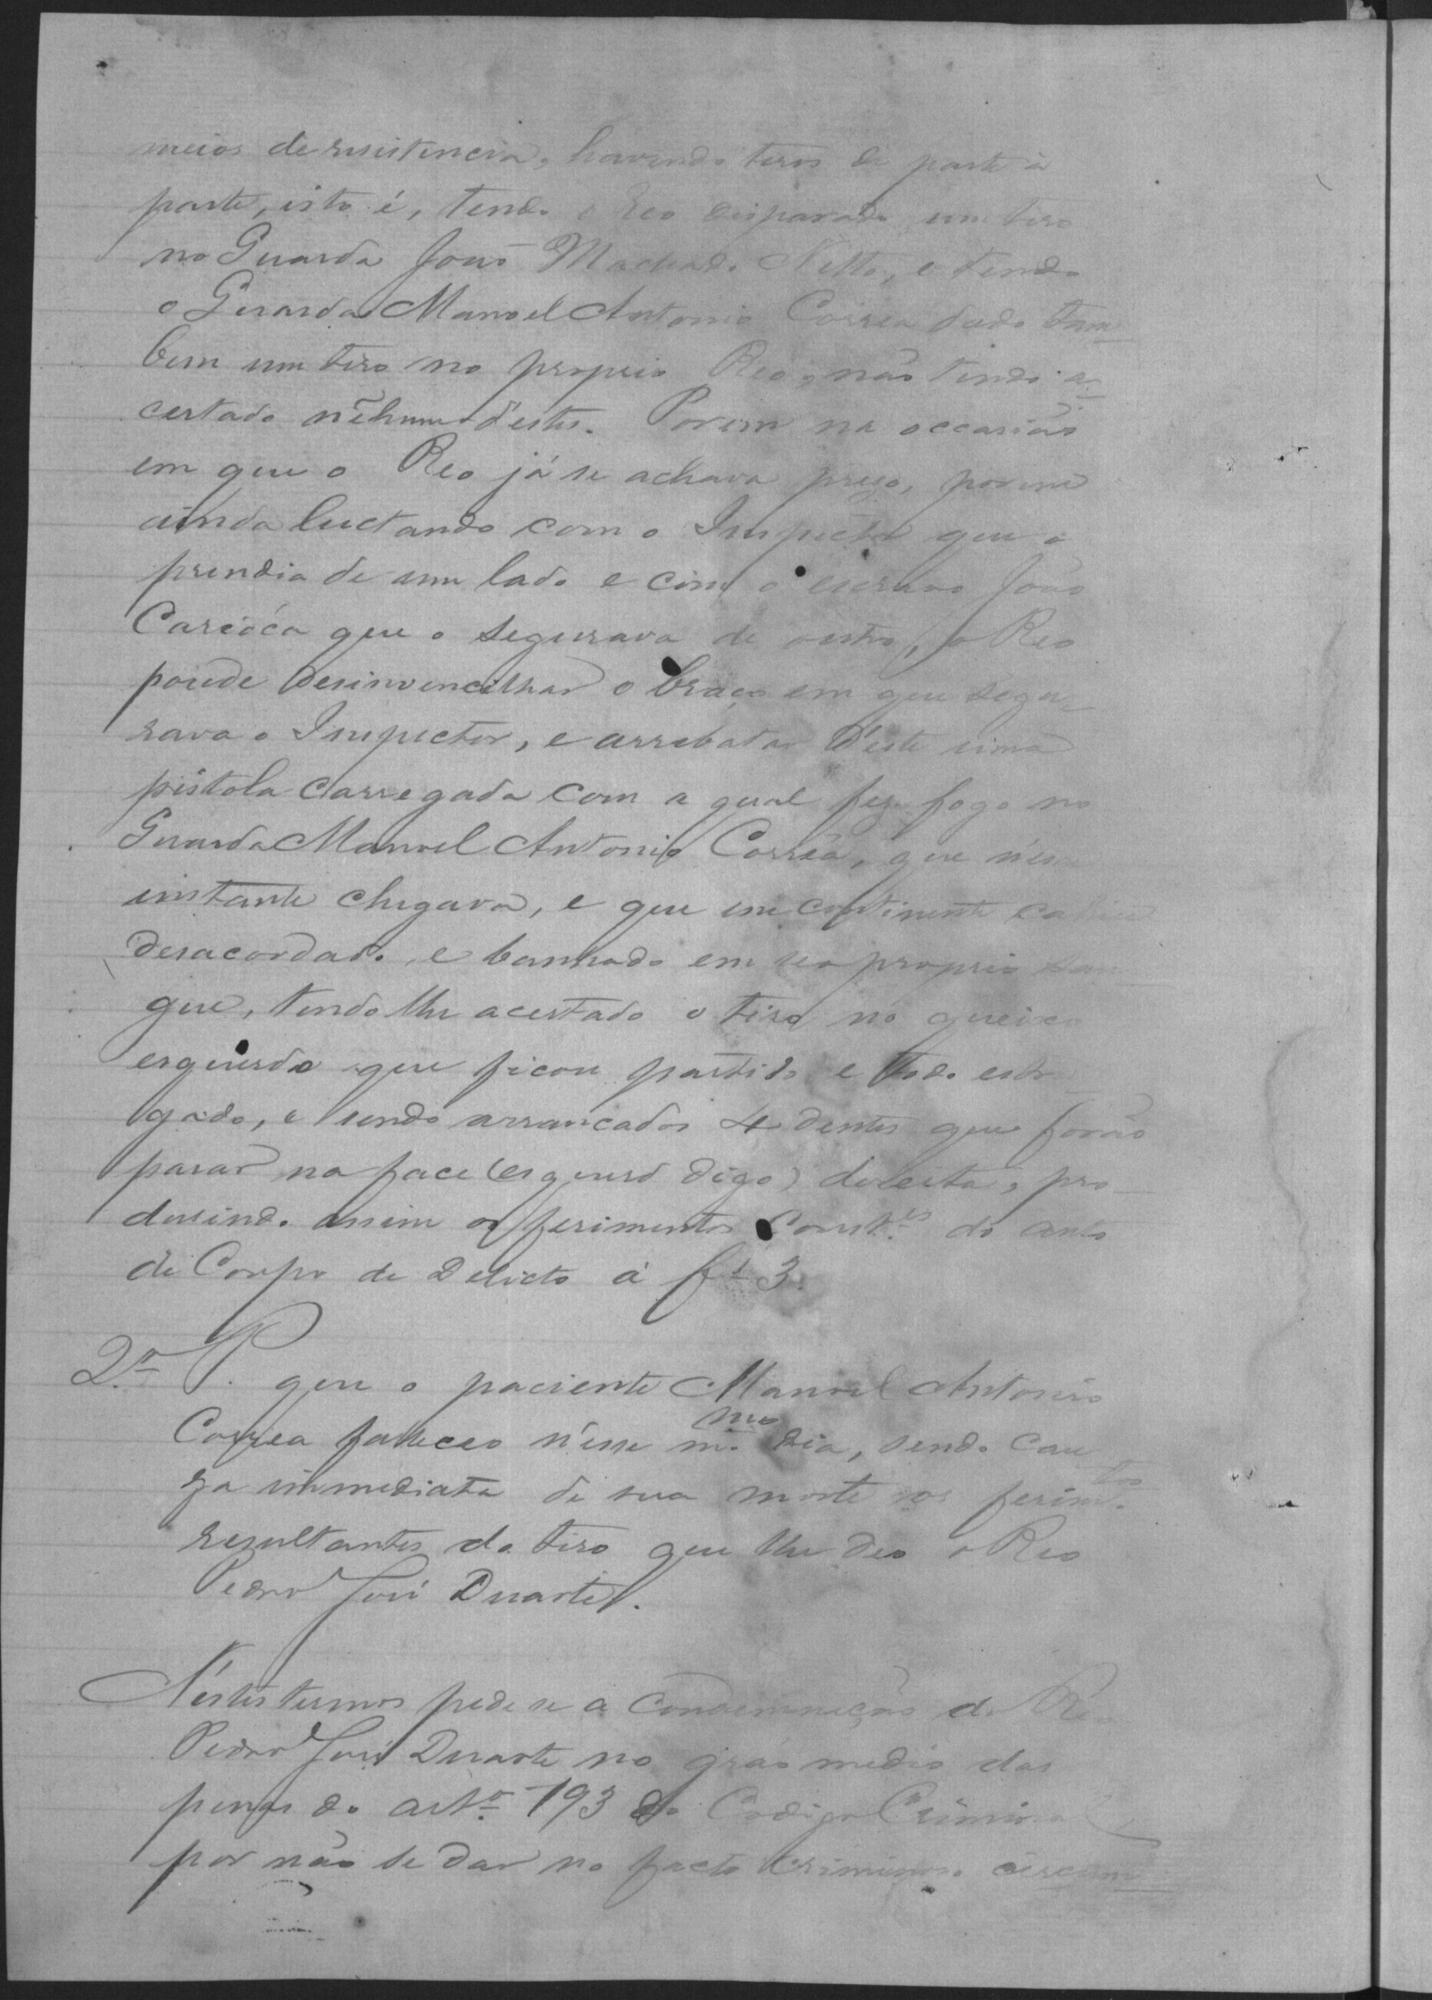 meios de resistencia, havendo tiros de parte à
parte, isto é, tendo o Reo disparado um tiro
no Guarda João Machado Netto, e tendo
o Guarda Manoel Antonio Correa dado tam
bem um tiro no proprio Reo, não tendo a=
certado nẽhum d'estes. Porem na occasião
em que o Reo já se achava preso, porem
ainda luctando com o Inspector que o
prendia de um lado e com o escravo João
Carióca que o segurava de outro, o Reo
poude desinvencilhar o braço em que segu=
rava o Inspector, e arrebatar d'este uma
pistola carregada com a qual fez fogo no
Guarda Manoel Antonio Corrêa, que n'esse
instante chegava, e que incontinente cahio
desacordado, e banhado em seo proprio san
gue, tendo lhe acertado o tiro no queixo
esquerdo que ficou partido e todo estra
gado, e sendo arrancados 4 dentes que forão
parar na face (esquerd digo) direita, pro=
dusindo assim os ferimentos Const.es do auto
de Corpo de Delicto á fs 3.
2.o P. que o paciente Manoel Antonio
Correa faleceo n'esse m.mo dia, sendo cau
za immediata de sua morte os ferim.tos
rezultantes do tiro que lhe deo o Reo
Pedro José Duarte.
N'estes termos pede se a condemnação do Réo
Pedro José Duarte no gráo medio das
penas do art.o 193 do Codigo Criminal
por não se dar no facto criminoso circum